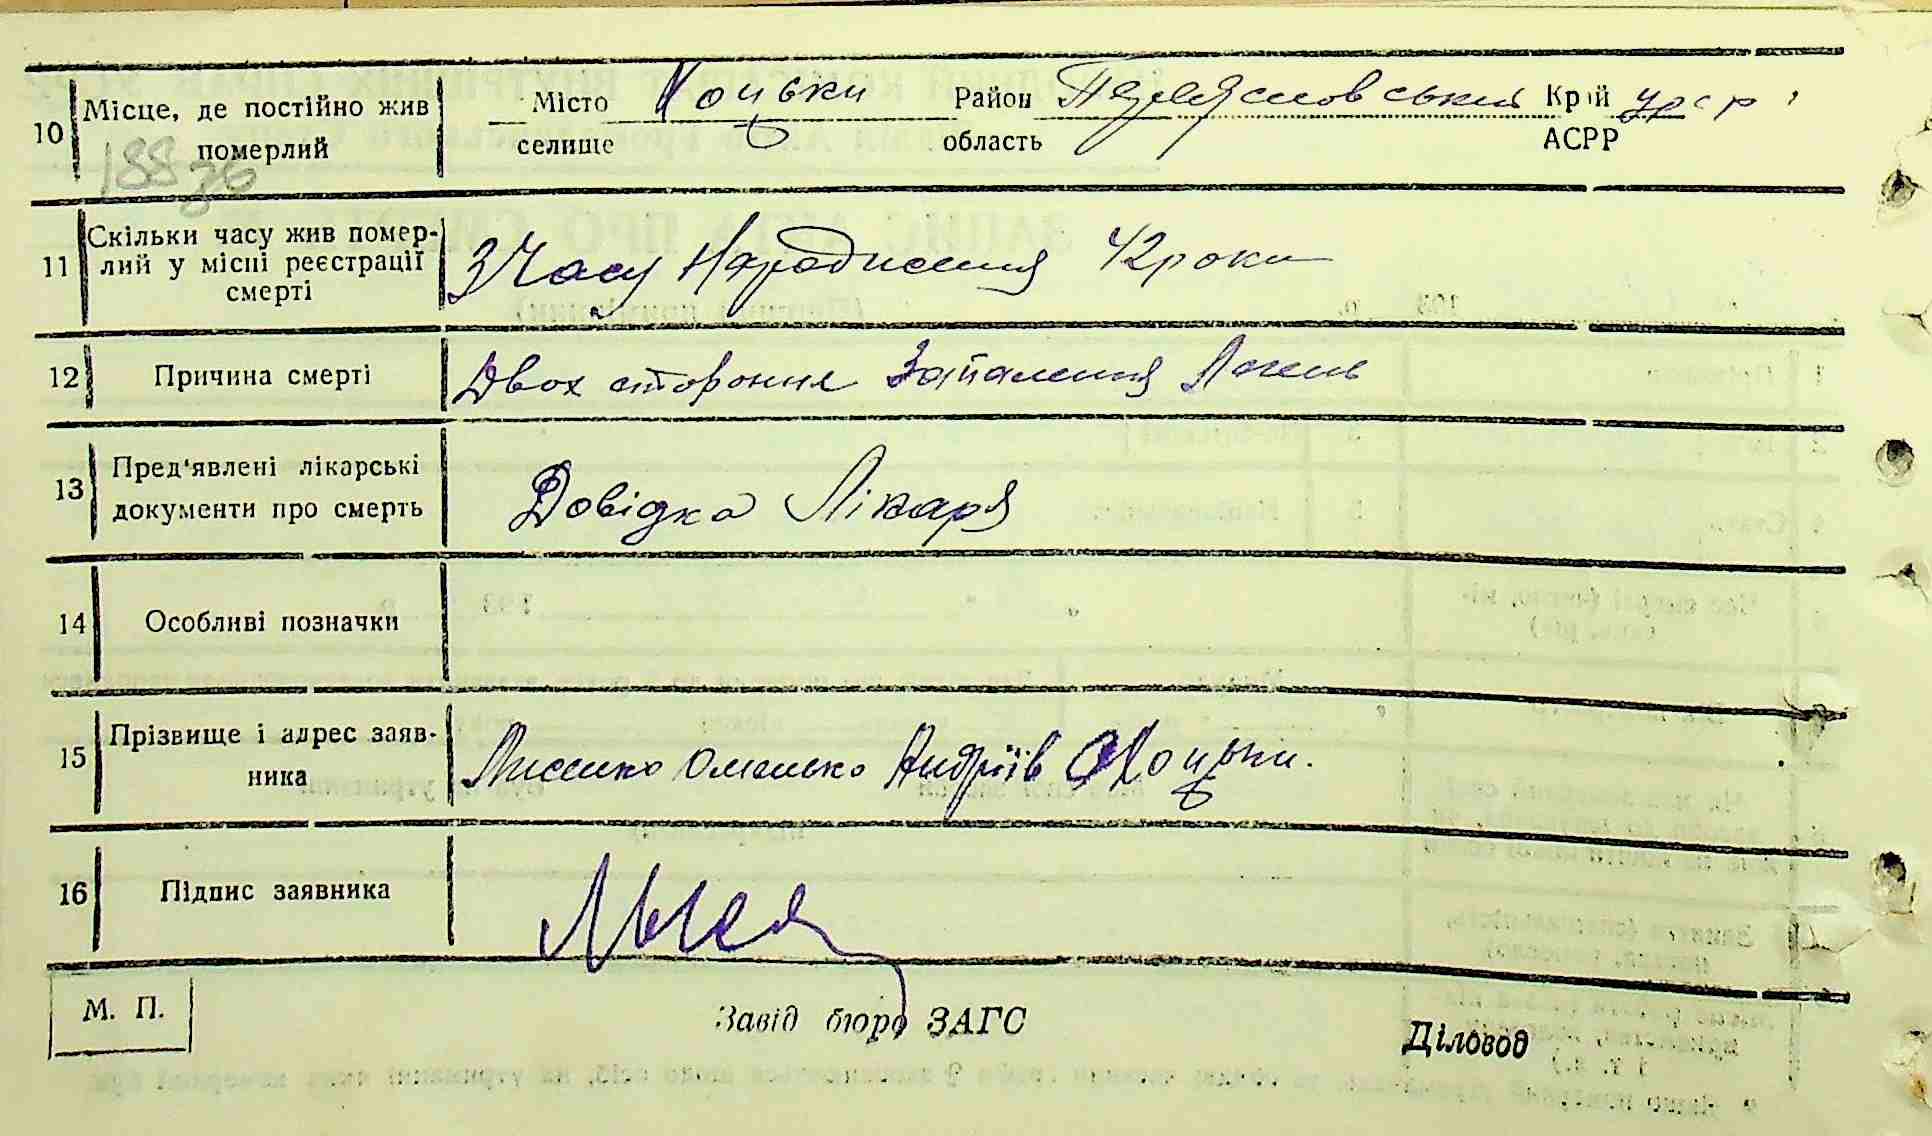 10 Місце, де постійно жив померлий
Місто селище Коцьки Район область Переяславський Край АСРР УРСР
188 зб
11 Скільки часу жив помер-
лий у місці реєстрації
смерті
З Часу Народження 42 роки
12 Причина смерті Двох стороннє Запалення Легень
13 Пред'явлені лікарські
документи про смерть
Довідка Лікаря
14 Особливі позначки
15 Прізвище і адрес заяв-
ника
Лисенко Омелько Андріїв С Коцьки.
16 Підпис заявника
М. П.
Завід бюро ЗАГС
Діловод